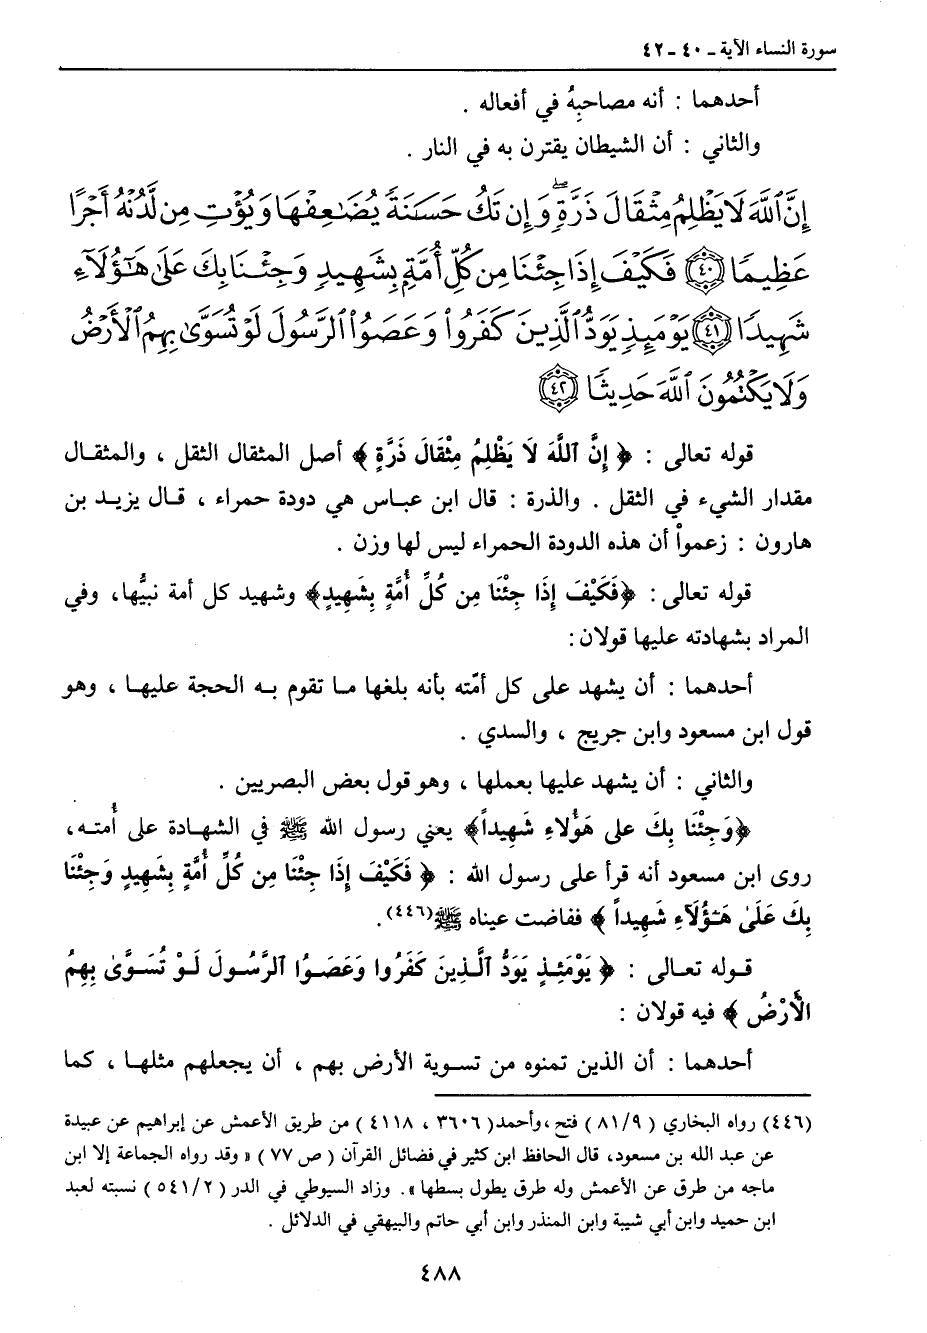 سورة النساء الآية ـ ٤٠ ـ ٤٢
أحدهما : أنه مصاحبهُ في أفعاله .
والثاني : أن الشيطان يقترن به في النار .
إِنَّ ٱللَّهَ لَا يَظۡلِمُ مِثۡقَالَ ذَرَّةٖۖ وَإِن تَكُ حَسَنَةٗ يُضَٰعِفۡهَا وَيُؤۡتِ مِن لَّدُنۡهُ أَجۡرًا
عَظِيمٗا ٤٠ فَكَيۡفَ إِذَا جِئۡنَا مِن كُلِّ أُمَّةِۭ بِشَهِيدٖ وَجِئۡنَا بِكَ عَلَىٰ هَٰٓؤُلَآءِ
شَهِيدٗا ٤١ يَوۡمَئِذٖ يَوَدُّ ٱلَّذِينَ كَفَرُواْ وَعَصَوُاْ ٱلرَّسُولَ لَوۡ تُسَوَّىٰ بِهِمُ ٱلۡأَرۡضُ
وَلَا يَكۡتُمُونَ ٱللَّهَ حَدِيثٗا ٤٢
قوله تعالى : ﴿ إِنَّ ٱللَّهَ لَا يَظْلِمُ مِثْقَالَ ذَرَّةٍ ﴾ أصل المثقال الثقل ، والمثقال
مقدار الشيء في الثقل . والذرة : قال ابن عباس هي دودة حمراء ، قال يزيد بن
هارون : زعمواْ أن هذه الدودة الحمراء ليس لها وزن .
قوله تعالى : ﴿فَكَيْفَ إِذَا جِئْنَا مِن كُلِّ أُمَّةٍ بِشَهِيدٍ﴾ وشهيد كل أمة نبيُّها، وفي
المراد بشهادته عليها قولان:
أحدهما : أن يشهد على كل أمّته بأنه بلغها ما تقوم به الحجة عليها ، وهو
قول ابن مسعود وابن جريج ، والسدي .
والثاني : أن يشهد عليها بعملها ، وهو قول بعض البصريين .
﴿وَجِئْنَا بِكَ على هَؤُلاءِ شَهِيداً﴾ يعني رسول الله ﷺ في الشهادة على أُمته،
روى ابن مسعود أنه قرأ على رسول الله : ﴿ فَكَيْفَ إِذَا جِئْنَا مِن كُلِّ أُمَّةٍ بِشَهِيدٍ وَجِئْنَا
بِكَ عَلَىٰ هَـٰؤُلَآءِ شَهِيداً ﴾ ففاضت عيناه ﷺ(٤٤٦).
قوله تعالى : ﴿ يَوْمَئِذٍ يَوَدُّ ٱلَّذِينَ كَفَرُوا وَعَصَوُا ٱلرَّسُولَ لَوْ تُسَوَّىٰ بِهِمُ
الْأَرْضُ ﴾ فيه قولان :
أحدهما : أن الذين تمنوه من تسوية الأرض بهم ، أن يجعلهم مثلها ، كما
(٤٤٦) رواه البخاري ( ٩/ ٨١ ) فتح ، وأحمد( ٣٦٠٦ ، ٤١١٨ ) من طريق الأعمش عن إبراهيم عن عبيدة
عن عبد الله بن مسعود، قال الحافظ ابن كثير في فضائل القرآن ( ص ٧٧ ) « وقد رواه الجماعة إلا ابن
ماجه من طرق عن الأعمش وله طرق يطول بسطها ». وزاد السيوطي في الدر ( ٢/ ٥٤١ ) نسبته لعبد
ابن حميد وابن أبي شيبة وابن المنذر وابن أبي حاتم والبيهقي في الدلائل .
٤٨٨